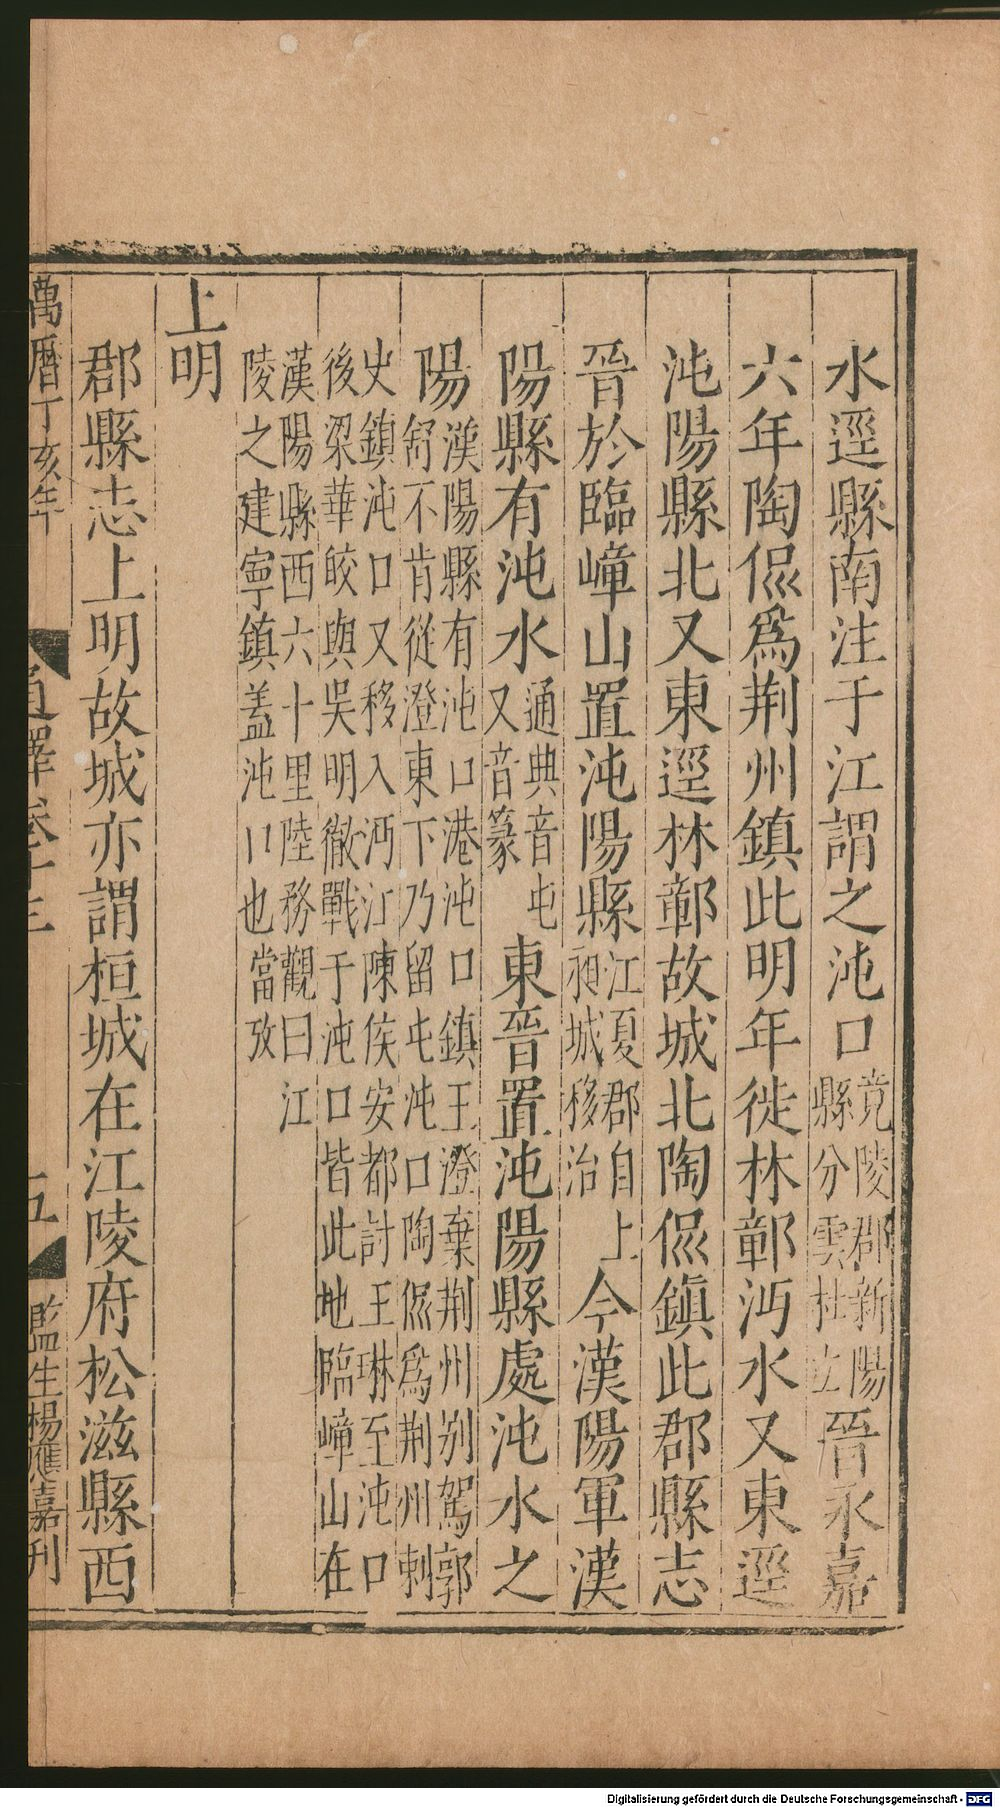 水逕縣南注于江謂之沌口竟陵郡新陽縣分雲杜立晉永嘉
六年陶侃爲荆州鎮此明年徙林鄣沔水又東逕
沌陽縣北又東逕林鄣故城北陶侃鎮此郡縣志
晉於臨嶂山置沌陽縣江夏郡自上昶城移治今漢陽軍漢
陽縣有沌水通典音屯又音篆東晉置沌陽縣處沌水之
陽漢陽縣有沌口港沌口鎮王澄棄荆州别駕郭舒不肯從澄東下乃留屯沌口陶侃爲荆州刺
史鎮沌口又移入沔江陳侯安都討王琳至沌口後梁華皎與吳明徹戰于沌口皆此地臨嶂山在
漢陽縣西六十里陸務觀曰江陵之建寧鎮盖沌口也當攷
上明
郡縣志上明故城亦謂桓城在江陵府松滋縣西
萬曆丁亥年
五
監生楊應嘉刊
Digitalisierung gefördert durch die Deutsche Forschungsgemeinschaft - DFG